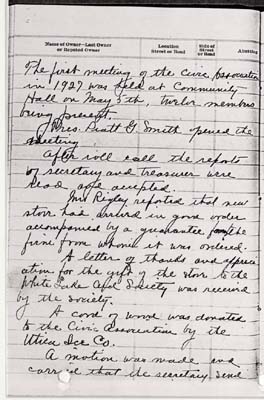 Name of Owner—Last Owner
or Reputed Owner
Location
Street or Road
Side of
Street
or Road
Abutting
The first meeting of the Civic Association
in 1927 was held at Community
Hall on May 5th, twelve members
being present.
Pres. Pratt G. Smith opened the
meeting
After roll call the reports
of secretary and treasurer were
read and accepted.
Mr. Rigley reported that new
stove had arrived in good order
accompanied by a guarantee from the
firm from whom it was ordered.
A letter of thanks and appreci
ation for the gift of the stove to the
White Lake Aid Society was received
by the Society.
A cord of wood was donated
to the Civic Association by the
Utica Ice Co.
A motion was made and
carried that the secretary send